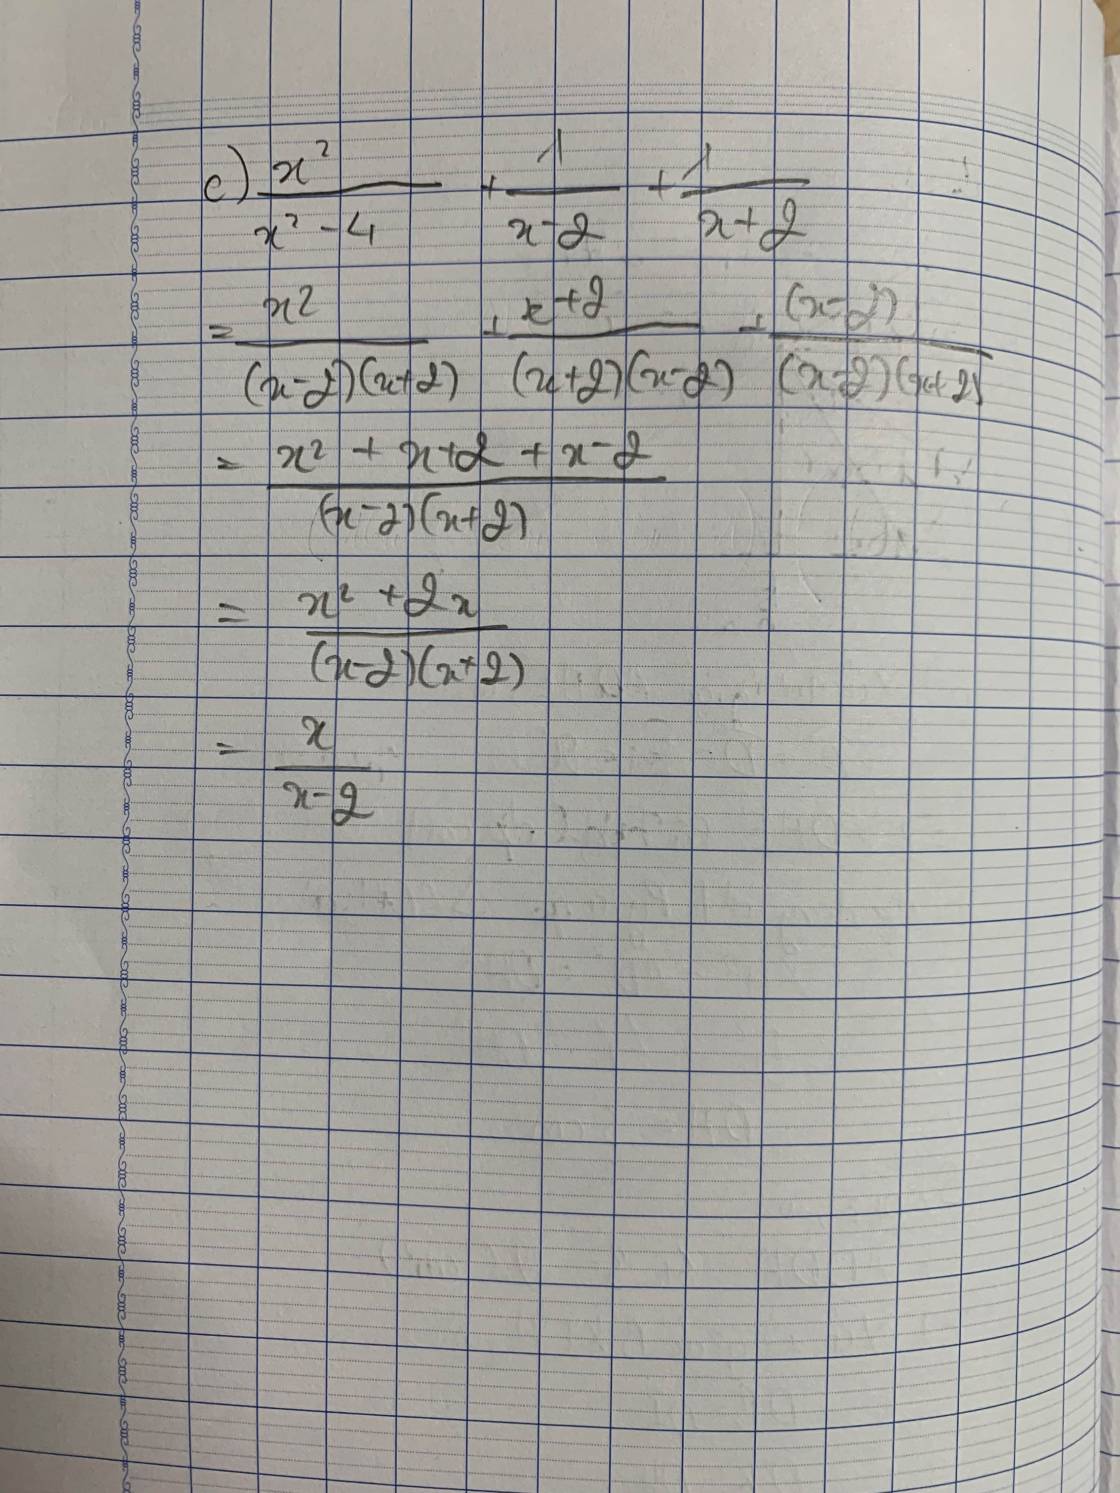 c) x²/(x² - 4) + 1/(x - 2) + 1/(x + 2)
= x²/((x-2)(x+2)) + (x+2)/((x+2)(x-2)) + (x-2)/((x-2)(x+2))
= (x² + x+2 + x-2)/((x-2)(x+2))
= (x² + 2x)/((x-2)(x+2))
= x/(x-2)